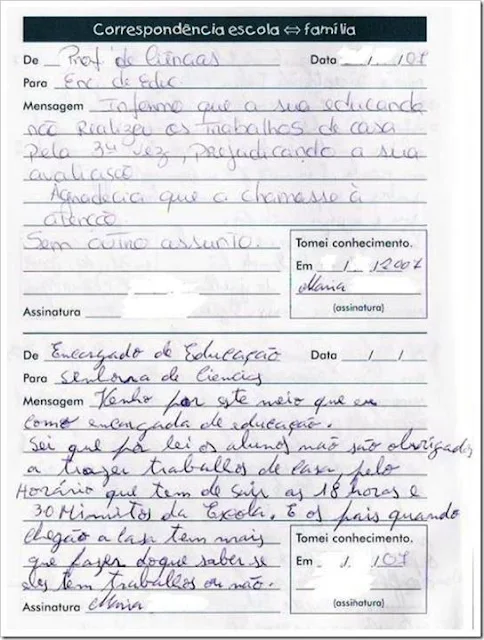 Correspondência escola ⇔ família
De Prof. de Ciências Data / /07
Para Enc. de Educ
Mensagem Informo que a sua educanda
não realizou os trabalhos de casa
pela 3ª vez, prejudicando a sua
avaliação
Agradecia que a chamasse à
atenção
Sem outro assunto.
Tomei conhecimento.
Em / /2007
Maria
(assinatura)
Assinatura
De Encargado de Educação Data / /
Para senhora de Ciencias
Mensagem Venho por este meio que eu
como encargada de educação.
Sei que por lei os alunos não são obrigados
a trazer trabalhos de casa, pelo
Horário que tem de sair as 18 horas e
30 Minutos da Escola. E os pais quando
chegão a casa tem mais
que fazer doque saber se
eles tem trabalhos ou não.
Tomei conhecimento.
Em / /07
(assinatura)
Assinatura Maria